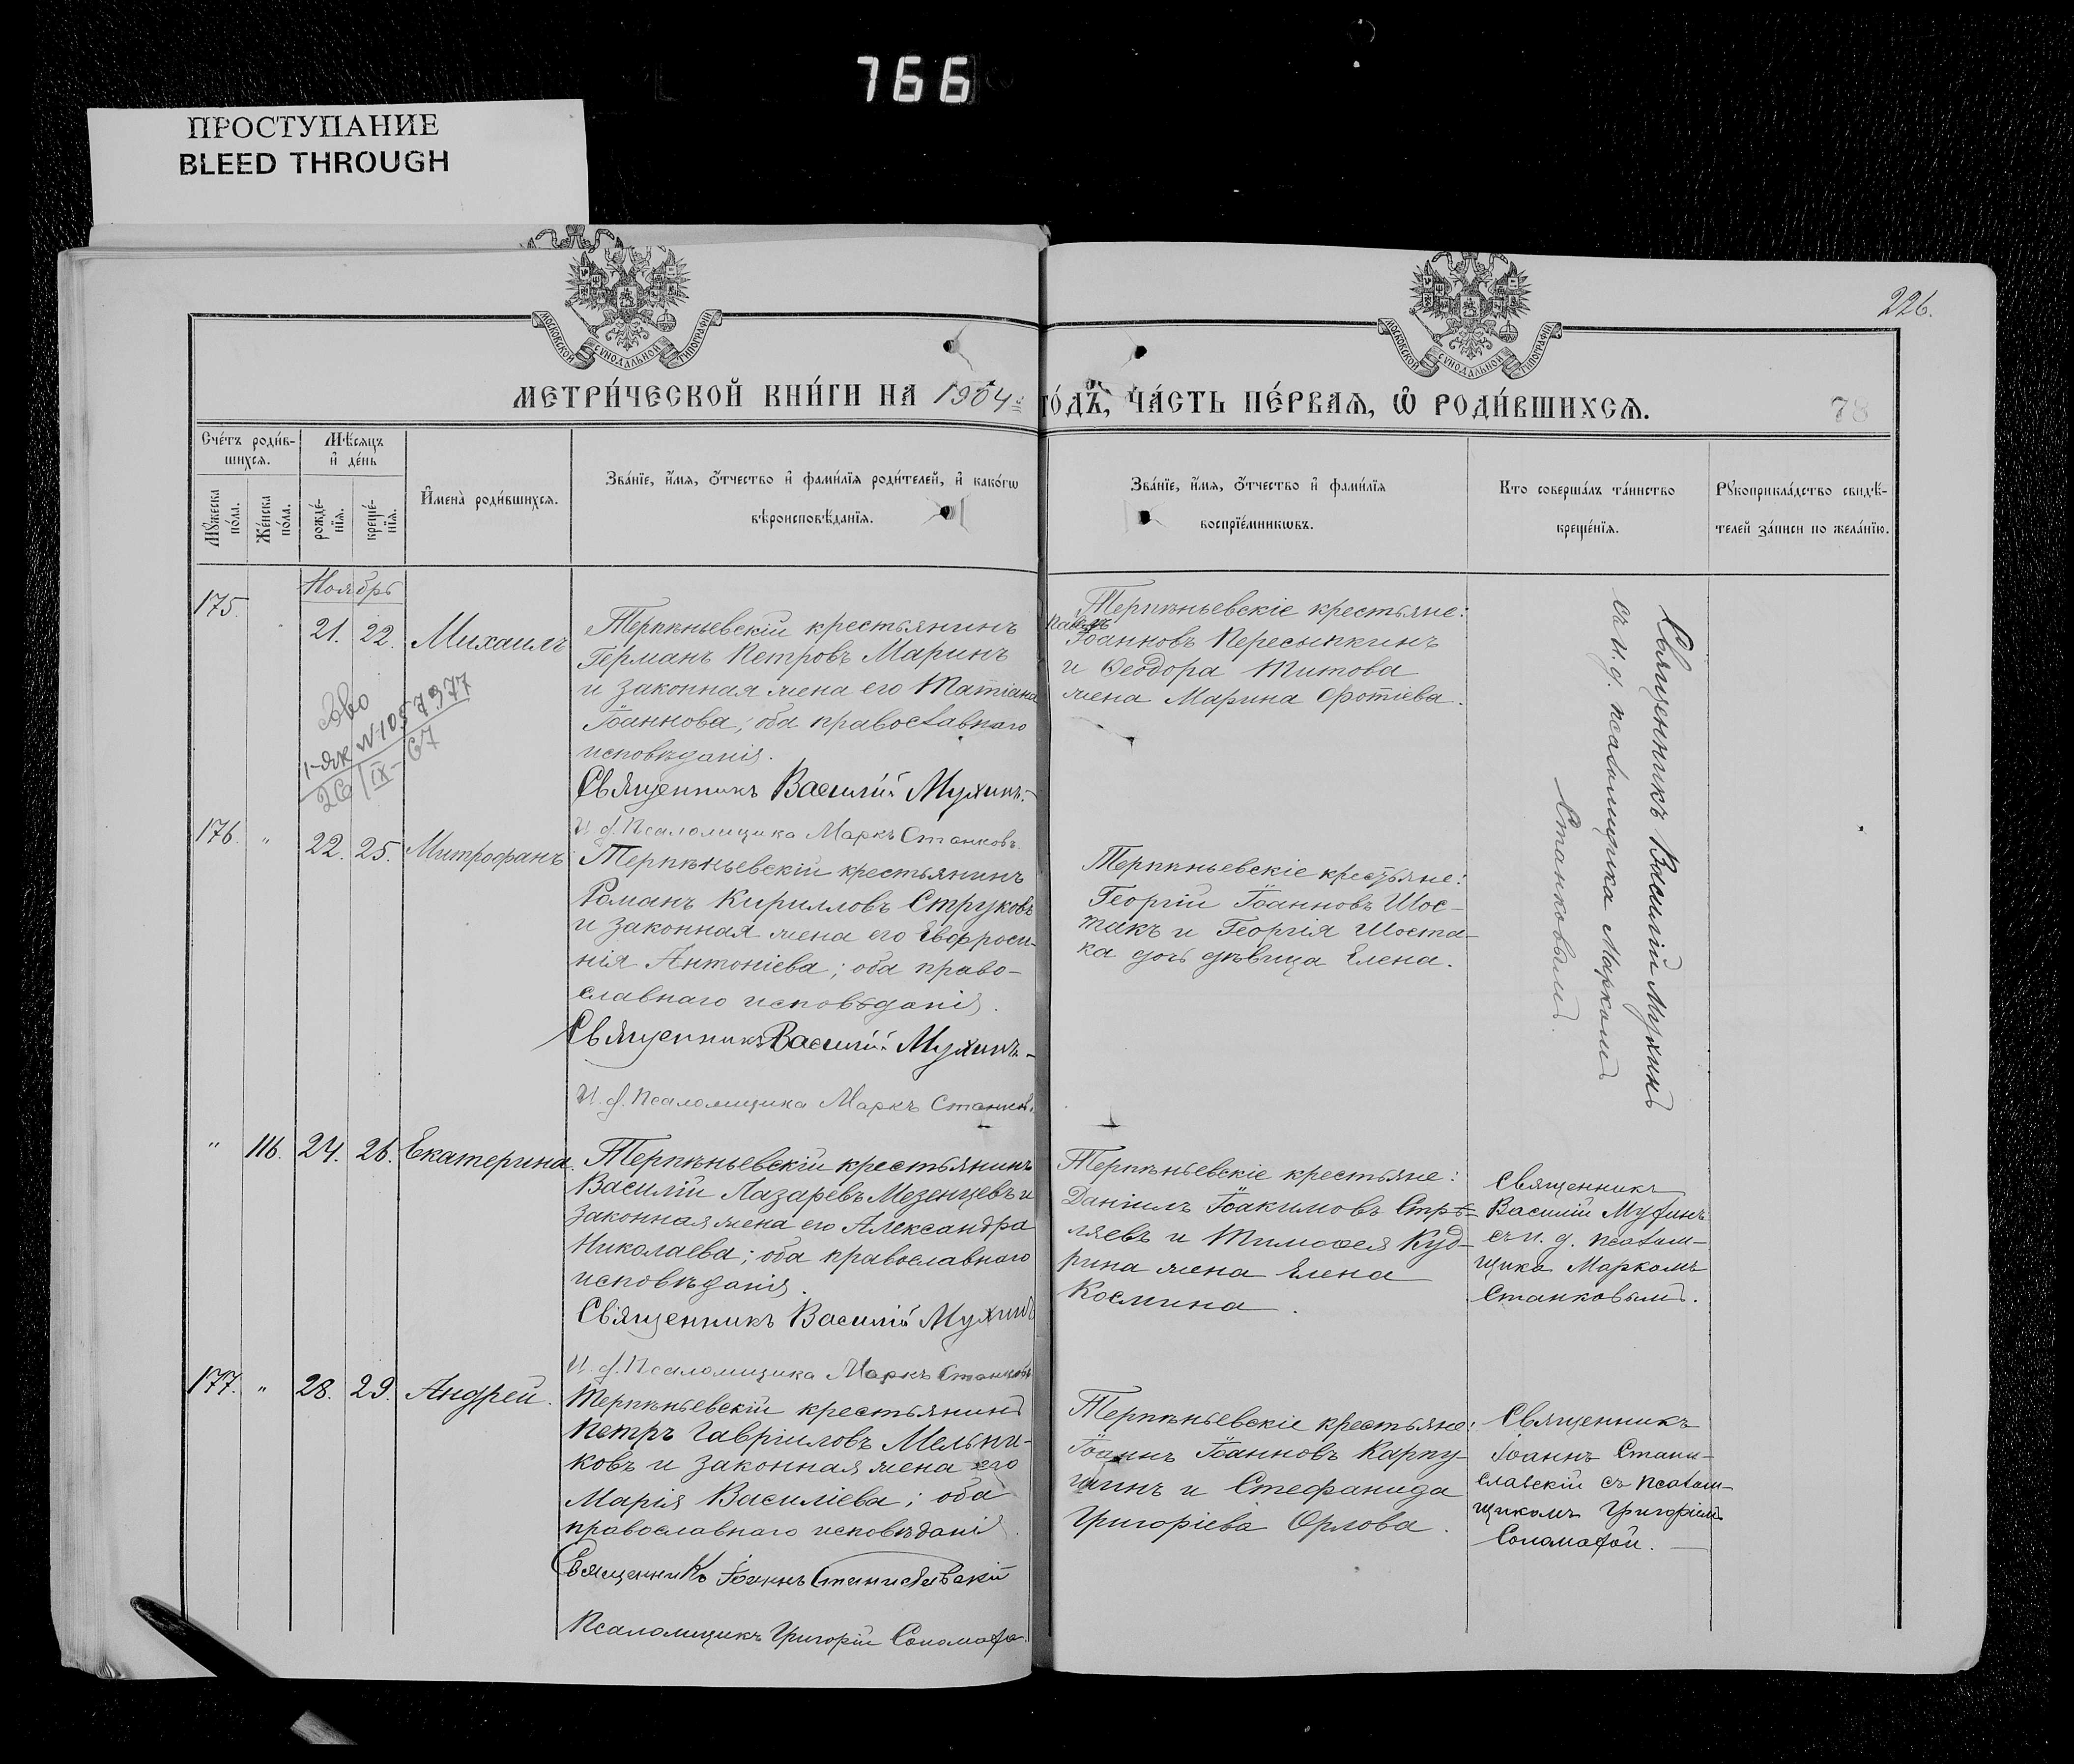 766
ПРОСТУПАНИЕ
BLEED THROUGH
МОСКОВСКОЙ СѴНОДАЛЬНОЙ ТИПОГРАФІИ
МОСКОВСКОЙ СѴНОДАЛЬНОЙ ТИПОГРАФІИ
226.
МЕТРИ́ЧЕСКОЙ КНИ́ГИ НА 1904 го́дъ, ЧА́СТЬ ПЕ́РВАѦ, Ѡ҆ РОДИ́ВШИХСѦ.
78
Сче́тъ роди́в-
шихсѧ.
Мꙋ́жеска по́ла.
Же́нска по́ла.
Мѣ́сѧцъ
и҆ де́нь
рожде́-
нїѧ.
креще́-
нїѧ.
И҆мена̀ роди́вшихсѧ.
Зва́нїе, и҆́мѧ, ѻ҆́тчество и҆ фами́лїѧ роди́телей, и҆ како́гѡ
вѣроисповѣ́данїѧ.
Зва́нїе, и҆́мѧ, ѻ҆́тчество и҆ фами́лїѧ
воспрїе́мникѡвъ.
Кто соверша́лъ та́инство
креще́нїѧ.
Рꙋкоприкла́дство свидѣ́-
телей за́писи по жела́нїю.
Ноябрь
175.
21. 22. Михаилъ
Терпѣньевскій крестьянинъ
Германъ Петровъ Маринъ
и законная жена его Татіана
Іоаннова; оба православнаго
исповѣданія.
Священникъ Василій Мухинъ.
И. д. Псаломщика Маркъ Станковъ.
Терпѣньевскіе крестьяне:
Павелъ
Іоанновъ Пересыпкинъ
и Ѳеодора Титова
жена Марина Фотіева.
Священникъ Василій Мухинъ
съ и. д. псаломщика Маркомъ
Станковымъ.
1-як № 1057977
26/IX-67
176. " 22. 25. Митрофанъ
Терпѣньевскій крестьянинъ
Романъ Кирилловъ Струковъ
и законная жена его Евфроси-
нія Антоніева; оба право-
славнаго исповѣданія.
Священникъ Василій Мухинъ.
И. д. Псаломщика Маркъ Станковъ.
Терпѣньевскіе крестьяне:
Георгій Іоанновъ Шос-
такъ и Георгія Шоста-
ка дочь дѣвица Елена.
" 116. 24. 26. Екатерина.
Терпѣньевскій крестьянинъ
Василій Лазаревъ Мезенцевъ и
законная жена его Александра
Николаева; оба православнаго
исповѣданія.
Священникъ Василій Мухинъ
И. д. Псаломщика Маркъ Станковъ
Терпѣньевскіе крестьяне:
Даніилъ Іоакимовъ Стрѣ-
ляевъ и Тимоѳея Куд-
рина жена Елена
Космина.
Священникъ
Василій Мухинъ
съ и. д. псалом-
щика Маркомъ
Станковымъ.
177. " 28. 29. Андрей.
Терпѣньевскій крестьянинъ
Петръ Гавріиловъ Мельни-
ковъ и законная жена его
Марія Василіева; оба
православнаго исповѣданія.
Священникъ Іоаннъ Станиславскій
Псаломщикъ Григорій Соломаха.
Терпѣньевскіе крестьяне:
Іоаннъ Іоанновъ Карпу-
шинъ и Стефанида
Григоріева Орлова.
Священникъ
Іоаннъ Стани-
славскій съ псалом-
щикомъ Григоріемъ
Соломахой.